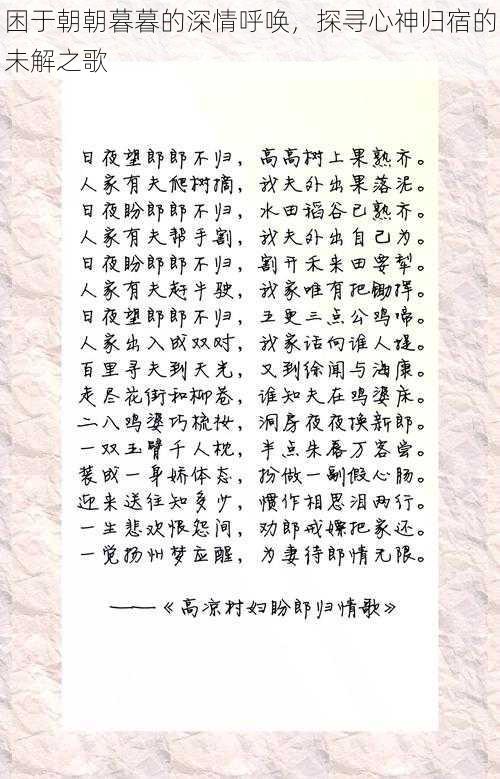 困于朝朝暮暮的深情呼唤，探寻心神归宿的
未解之歌
日夜望郎郎不归，高高树上果熟齐。
人家有夫爬树摘，我夫外出果落泥。
日夜盼郎郎不归，水田稻谷已熟齐。
人家有夫帮手割，我夫外出自己为。
日夜盼郎郎不归，割开禾来田要犁。
人家有夫赶牛驶，我家唯有把锄挥。
日夜望郎郎不归，五更三点公鸡啼。
人家出入成双对，我家话向谁人提。
百里寻夫到天光，又到徐闻与海康。
走尽花街和柳巷，谁知夫在鸡婆床。
二八鸡婆巧梳妆，洞房夜夜换新郎。
一双玉臂千人枕，半点朱唇万客尝。
装成一身娇体态，扮做一副假心肠。
迎来送往知多少，惯作相思泪两行。
一生悲欢恨怨间，劝郎戒嫖把家还。
一觉扬州梦应醒，为妻待郎情无限。
——《高凉村妇盼郎归情歌》